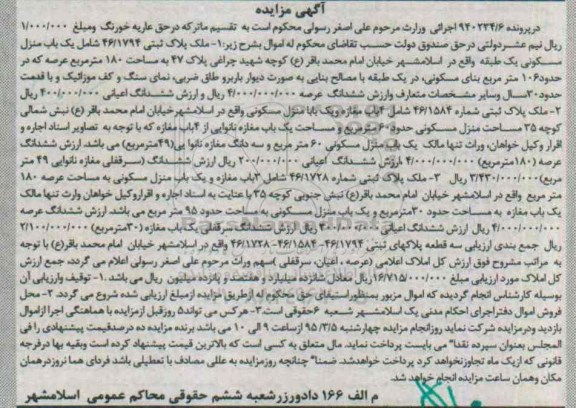 آگهی مزایده
درپرونده 940234/6 اجرائی وراثت مرحوم علی اصغر رسولی محکوم است به تقسیم ماترکه درحق عاریه خورنگ ومبلغ 1/000/000
ریال نیم عشردولتی درحق صندوق دولت حسب تقاضای محکوم له اموال بشرح زیر:1- ملک پلاک ثبتی 46/1794 شامل یک باب منزل
مسکونی یک طبقه واقع در اسلامشهر خیابان امام محمد باقر (ع) کوچه شهید چراغی پلاک 47 به مساحت 180 مترمربع عرصه که در
حدود106 متر مربع بنای مسکونی، در یک طبقه با مصالح بنایی به صورت دیوار باربرو طاق ضربی، نمای سنگ و کف موزائیک و با قدمت
حدود30سال وسایر مشخصات متعارف وارزش ششدانگ عرصه 4/000/000/000 ریال و ارزش ششدانگ اعیانی 400/000/000 ریال
2- ملک پلاک ثبتی شماره 46/1584 شامل 2باب مغازه ویک باب منزل مسکونی واقع در اسلامشهرخیابان امام محمد باقر(ع) نبش شمالی
کوچه 35 مساحت منزل مسکونی حدود 60مترمربع و مساحت یک باب مغازه نانوایی از 2باب مغازه که با توجه به تصاویر اسناد اجاره و
اقرار وکیل خواهان، وراث تنها مالک یک باب منزل مسکونی 60 متر مربع و سه دانگ مغازه نانوایی(49مترمربع) می باشد ارزش ششدانگ
عرصه (180مترمربع) 4/000/000/000 ،ارزش ششدانگ اعیانی 200/000/000 ریال ارزش ششدانگ (سرقفلی مغازه نانوایی 49 متر
مربع)3/430/000/000 ریال 3- ملک پلاک ثبتی شماره 46/1728 شامل 3باب مغازه و یک باب منزل مسکونی به مساحت عرصه 180
متر مربع واقع در اسلامشهر خیابان امام محمد باقر(ع) نبش جنوبی کوچه 35 باعنایت به اسناد اجاره و اقراروکیل خواهان وارث تنها مالک
یک باب مغازه به مساحت حدود 30مترمربع و یک باب منزل مسکونی به مساحت حدود 95 متر مربع می باشد. ارزش ششدانگ عرصه
4/000/000/000 ریال ارزش ششدانگ اعیانی 400/000/000 ریال ارزش ششدانگ سرقفلی یک باب مغازه (30مترمربع) 2/100/000/000
ریال جمع بندی ارزیابی سه قطعه پلاکهای ثبتی 46/1794-46/1584-46/1728 واقع در اسلامشهر خیابان امام محمد باقر(ع) با توجه
به مراتب مشروح فوق ارزش کل املاک اعلامی (عرصه ، اعیان، سرقفلی )سهم وراث مرحوم علی اصغر رسولی اعلام می گردد، جمع ارزش
کل املاک مورد ارزیابی مبلغ 16/715/000/000ریال معادل شانزده میلیارد و هفتصد و پانزده میلیون ریال می باشد. 1- توقیف وارزیابی آن
بوسیله کارشناس انجام گردیده که اموال مزبور بمنظوراستیفای حق محکوم له ازطریق مزایده ازمبلغ ارزیابی شده شروع می گردد. 2- محل
فروش اموال دفتراجرای احکام مدنی یک اسلامشهر شعبه 6حقوقی است.3- هرکس می تواند5 روزقبل ازمزایده با هماهنگی اجرا ازاموال
بازدید ودرمزایده شرکت نماید روزانجام مزایده چهارشنبه 95/3/5 ازساعت 9 الی 10 می باشد برنده مزایده ده درصدقیمت پیشنهادی را فی
المجلس بعنوان سپرده نقدا" می بایست پرداخت نماید. مال متعلق به کسی است که بالاترین قیمت پیشنهاد کرده است وبقیه بها درفرجه
قانونی که ازیک ماه تجاوزنخواهد کرد پرداخت خواهدشد. ضمنا" چنانچه روزمزایده به عللی مصادف با تعطیلی باشد فردای همان روزدرهمان
مکان وهمان ساعت مزایده انجام خواهد شد.
م الف 166 دادورزرشعبه ششم حقوقی محاکم عمومی اسلامشهر